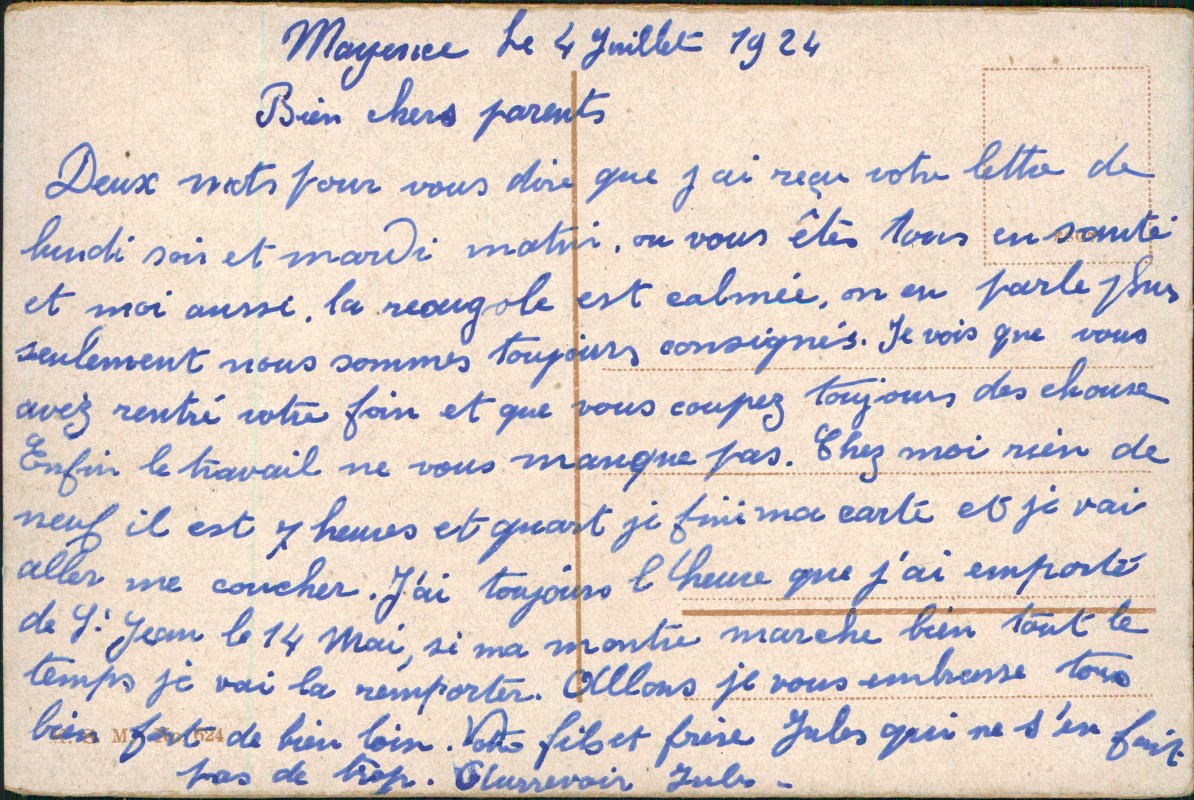 Mayence Le 4 Juillet 1924
Bien chers parents
Deux mots pour vous dire que j'ai reçu votre lettre de
lundi soir et mardi matin, ou vous êtes tous en santé
et moi aussi, la rougole est calmée, on en parle plus
seulement nous sommes toujours consignés. Je vois que vous
avez rentré votre foin et que vous coupez toujours des
Enfin le travail ne vous manque pas. Chez moi rien de
neuf il est 7 heures et quart je fini ma carte et je vai
aller me coucher. J'ai toujours l'heure que j'ai emporté
de St Jean le 14 Mai, si ma montre marche bien tout le
temps je vai la remporter. Allons je vous embrasse tous
bien fort de bien loin. Votre fils et frère Jules qui ne s'en fait
pas de trop. Aurrevoir Jules -